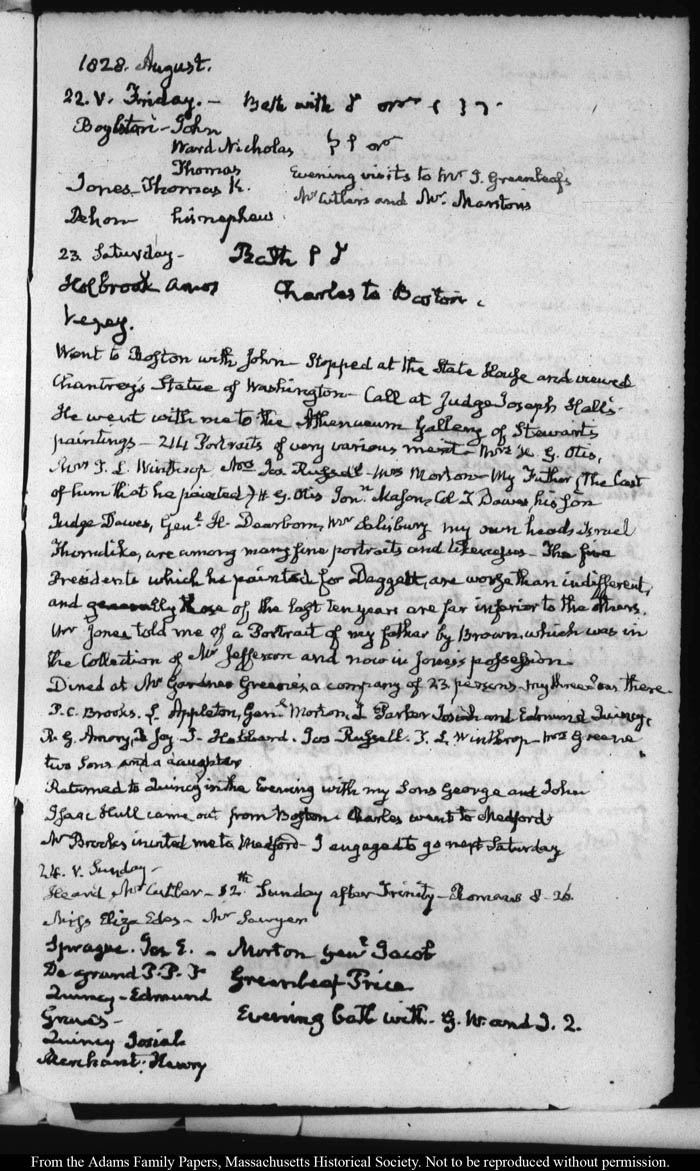 1828. August.
22. V. Friday. — Bath with
Boylston - John
Ward Nicholas
Thomas
Evening visits to Mr J. Greenleaf's
Jones - Thomas K.
Mr Cutlers and Mr. Marston's
Dehon his nephew.
23. Saturday — Bath
Holbrook Amos Charles to Boston.
Vezey.
Went to Boston with John — Stopped at the State House and viewed
Chantrey's Statue of Washington — Call at Judge Joseph Hall's —
He went with me to the Athenaeum Gallery of Stewart's
paintings — 214 Portraits of very various merit — Mrs H. G. Otis,
T. L. Winthrop, Mrs Jos Russell — Mrs Morton — My Father, (The last
of him that he painted) H. G. Otis Jonn Mason, Col. T Dawes, his Son
Judge Dawes, Genl H. Dearborn, Mr Salisbury my own head, Israel
Thorndike, are among many fine portraits and likenesses. The five
Presidents which he painted for Daggett, are worse than indifferent,
and generally those of the last ten years are far inferior to the others.
Mr Jones told me of a Portrait of my father by Brown, which was in
the Collection of Mr Jefferson and now in Jones's possession
Dined at Mr Gardner Greene's a company of 23 persons — my three Sons there.
P. C. Brooks. S. Appleton, Genl Morton, I. Parker Josiah and Edmund Quincy,
R. G. Amory, Joy — Hubbard. Jos Russell. T. L. Winthrop — Mrs Greene
two Sons and a daughter
Returned to Quincy in the Evening with my Sons George and John
Isaac Hull came out from Boston. Charles went to Medford
Mr Brooks invited me to Medford — I engaged to go next Saturday
24. V. Sunday —
Heard Mr Cutler — 12th Sunday after Trinity — Romans 8. 26
Miss Eliza Edes — Mr Sawyer
Sprague. Jos E. — Morton Genl Jacob
De grand P. P. F Greenleaf Price
Quincy - Edmund
Graves - Evening bath with G. W. and J. 2.
Quincy Josiah
Merchant. Henry
From the Adams Family Papers, Massachusetts Historical Society. Not to be reproduced without permission.